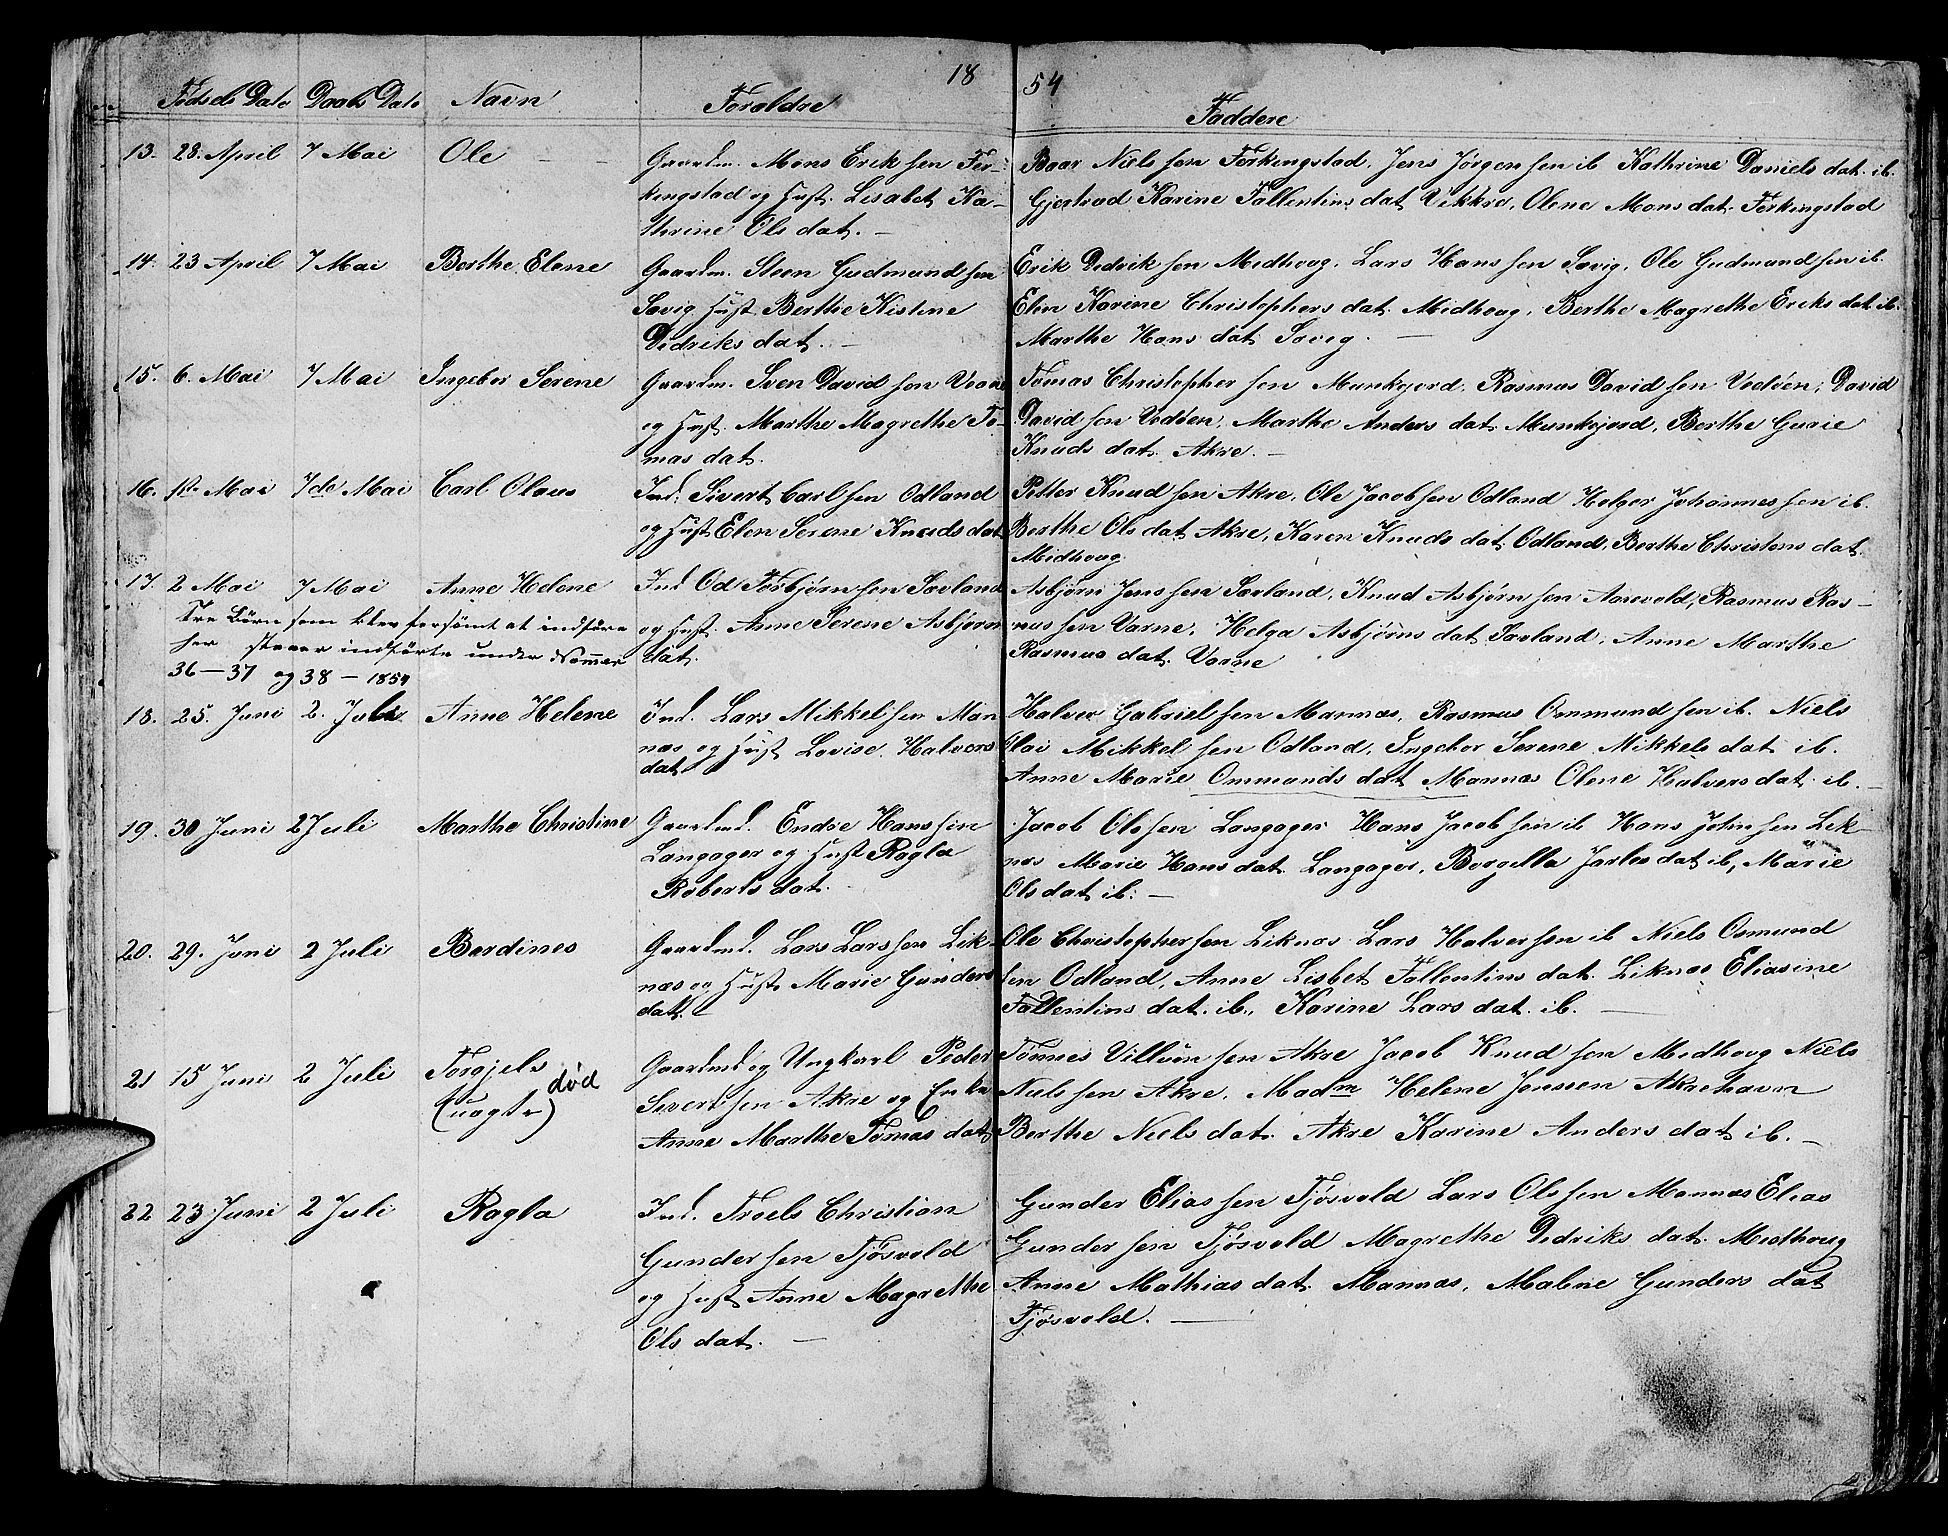 18 54
Fødsels Dato Daabs Dato Navn Forældre Faddere
13. 28. April 7 Mai Ole Gaardm. Mons Eriksen Fer-
kingstad og Hust. Lisabet Ka-
thrine Olsdat.
Baar Nielssen Ferkingstad, Jens Jörgensen ib Kathrine Daniels dat. ib.
Gjertrud Karine Fallentins dat Vikkre, Olene Mons dat. Ferkingstad
14. 23 April 7 Mai Berthe Elene Gaardm. Steen Gudmundsen
Sævig Hust. Berthe Kistine
Didriks dat.
Erik Didriksen Midhoug, Lars Hanssen Sævig, Ole Gudmundsen ib.
Elen Karine Christophers dat. Midhoug, Berthe Magrethe Eriks dat ib.
Marthe Hans dat Sævig.
15. 6. Mai 7 Mai Ingebor Serene Gaardm. Sven Davidsen
og Hust. Marthe Magrethe To-
mas dat.
Tomas Christophersen Munkejord, Rasmus Davidsen Vedøen, David
Davidsen Vedøen, Marthe Anders dat Munkejord, Berthe Gurie
Knuds dat. Akre.
16. 1ste Mai 7de Mai Carl Olaus Ind. Sivert Carlsen Odland
og Hust Elen Serene Knuds dat
Petter Knudsen Akre, Ole Jacobsen Odland Holger Johannessen ib.
Berthe Ols dat Akre, Karen Knuds dat. Odland, Berthe Christens dat.
Midhoug
17. 2 Mai 7 Mai Anne Helene Ind Od Torbjørnsen Sævland
og Hust. Anne Serene Asbjørns
dat.
Asbjørn Jenssen Sævland, Knud Asbjørnsen Aarevold, Rasmus Ras-
mussen Varne, Helga Asbjørns dat Sævland, Anne Marthe
Rasmus dat. Varne
Tre Børn som blev forsömt at indföre
her staaer indførte under Nommer
36 - 37 og 38 - 1854
18. 25. Juni 2. Juli Anne Helene Ind. Lars Mikkelsen Man
næs og Hust Lovise Halvors
dat
Halvor Gabrielsen Mannæs, Rasmus Ommundsen ib. Niels
Olai Mikkelsen Odland, Ingebor Serene Mikkels dat ib.
Anne Marie Ommunds dat Mannæs Olene Halvers dat. ib.
19. 30 Juni 2 Juli Marthe Christine Gaardmd. Endre Hanssen
Langager og Hust Ragla
Roberts dat.
Jacob Olssen Langager Hans Jacobsen ib Hans Johnsen Lik-
næs Marie Hans dat. Langager, Borgella Jarles dat ib, Marie
Ols dat ib.
20. 29. Juni 2 Juli Berdines Gaardmd. Lars Larssen Lik-
næs og Hust. Marie Gunders
dat.
Ole Christophersen Liknæs Lars Halversen ib Niels Osmund
sen Odland, Anne Lisbet Fallentins dat. Liknæs Eliasine
Fallentins dat. ib., Karine Lars dat. ib.
21 15 Juni 2 Juli Torojels
(uægte) død
Gaardmd og Ungkarl Peder
Sivertsen Akre og Enke
Anne Marthe Tomas dat
Tønnes Villumsen Akre Jacob Knudsen Midhoug Niels
Nielssen Akre, Madm Helene Jenssen Akrehavn
Berthe Niels dat. Akre Karine Anders dat ib.
22 23 Juni 2 Juli Ragla Ind. Troels Christian
Gundersen Tjøsvold
og Hust Anne Magrethe
Ols dat.
Gunder Eliassen Tjösvold Lars Olssen Mannæs Elias
Gundersen Tjösvold Magrethe Didriks dat. Midhoug
Anne Mathias dat. Mannæs, Malene Gunders dat
Tjøsvold.